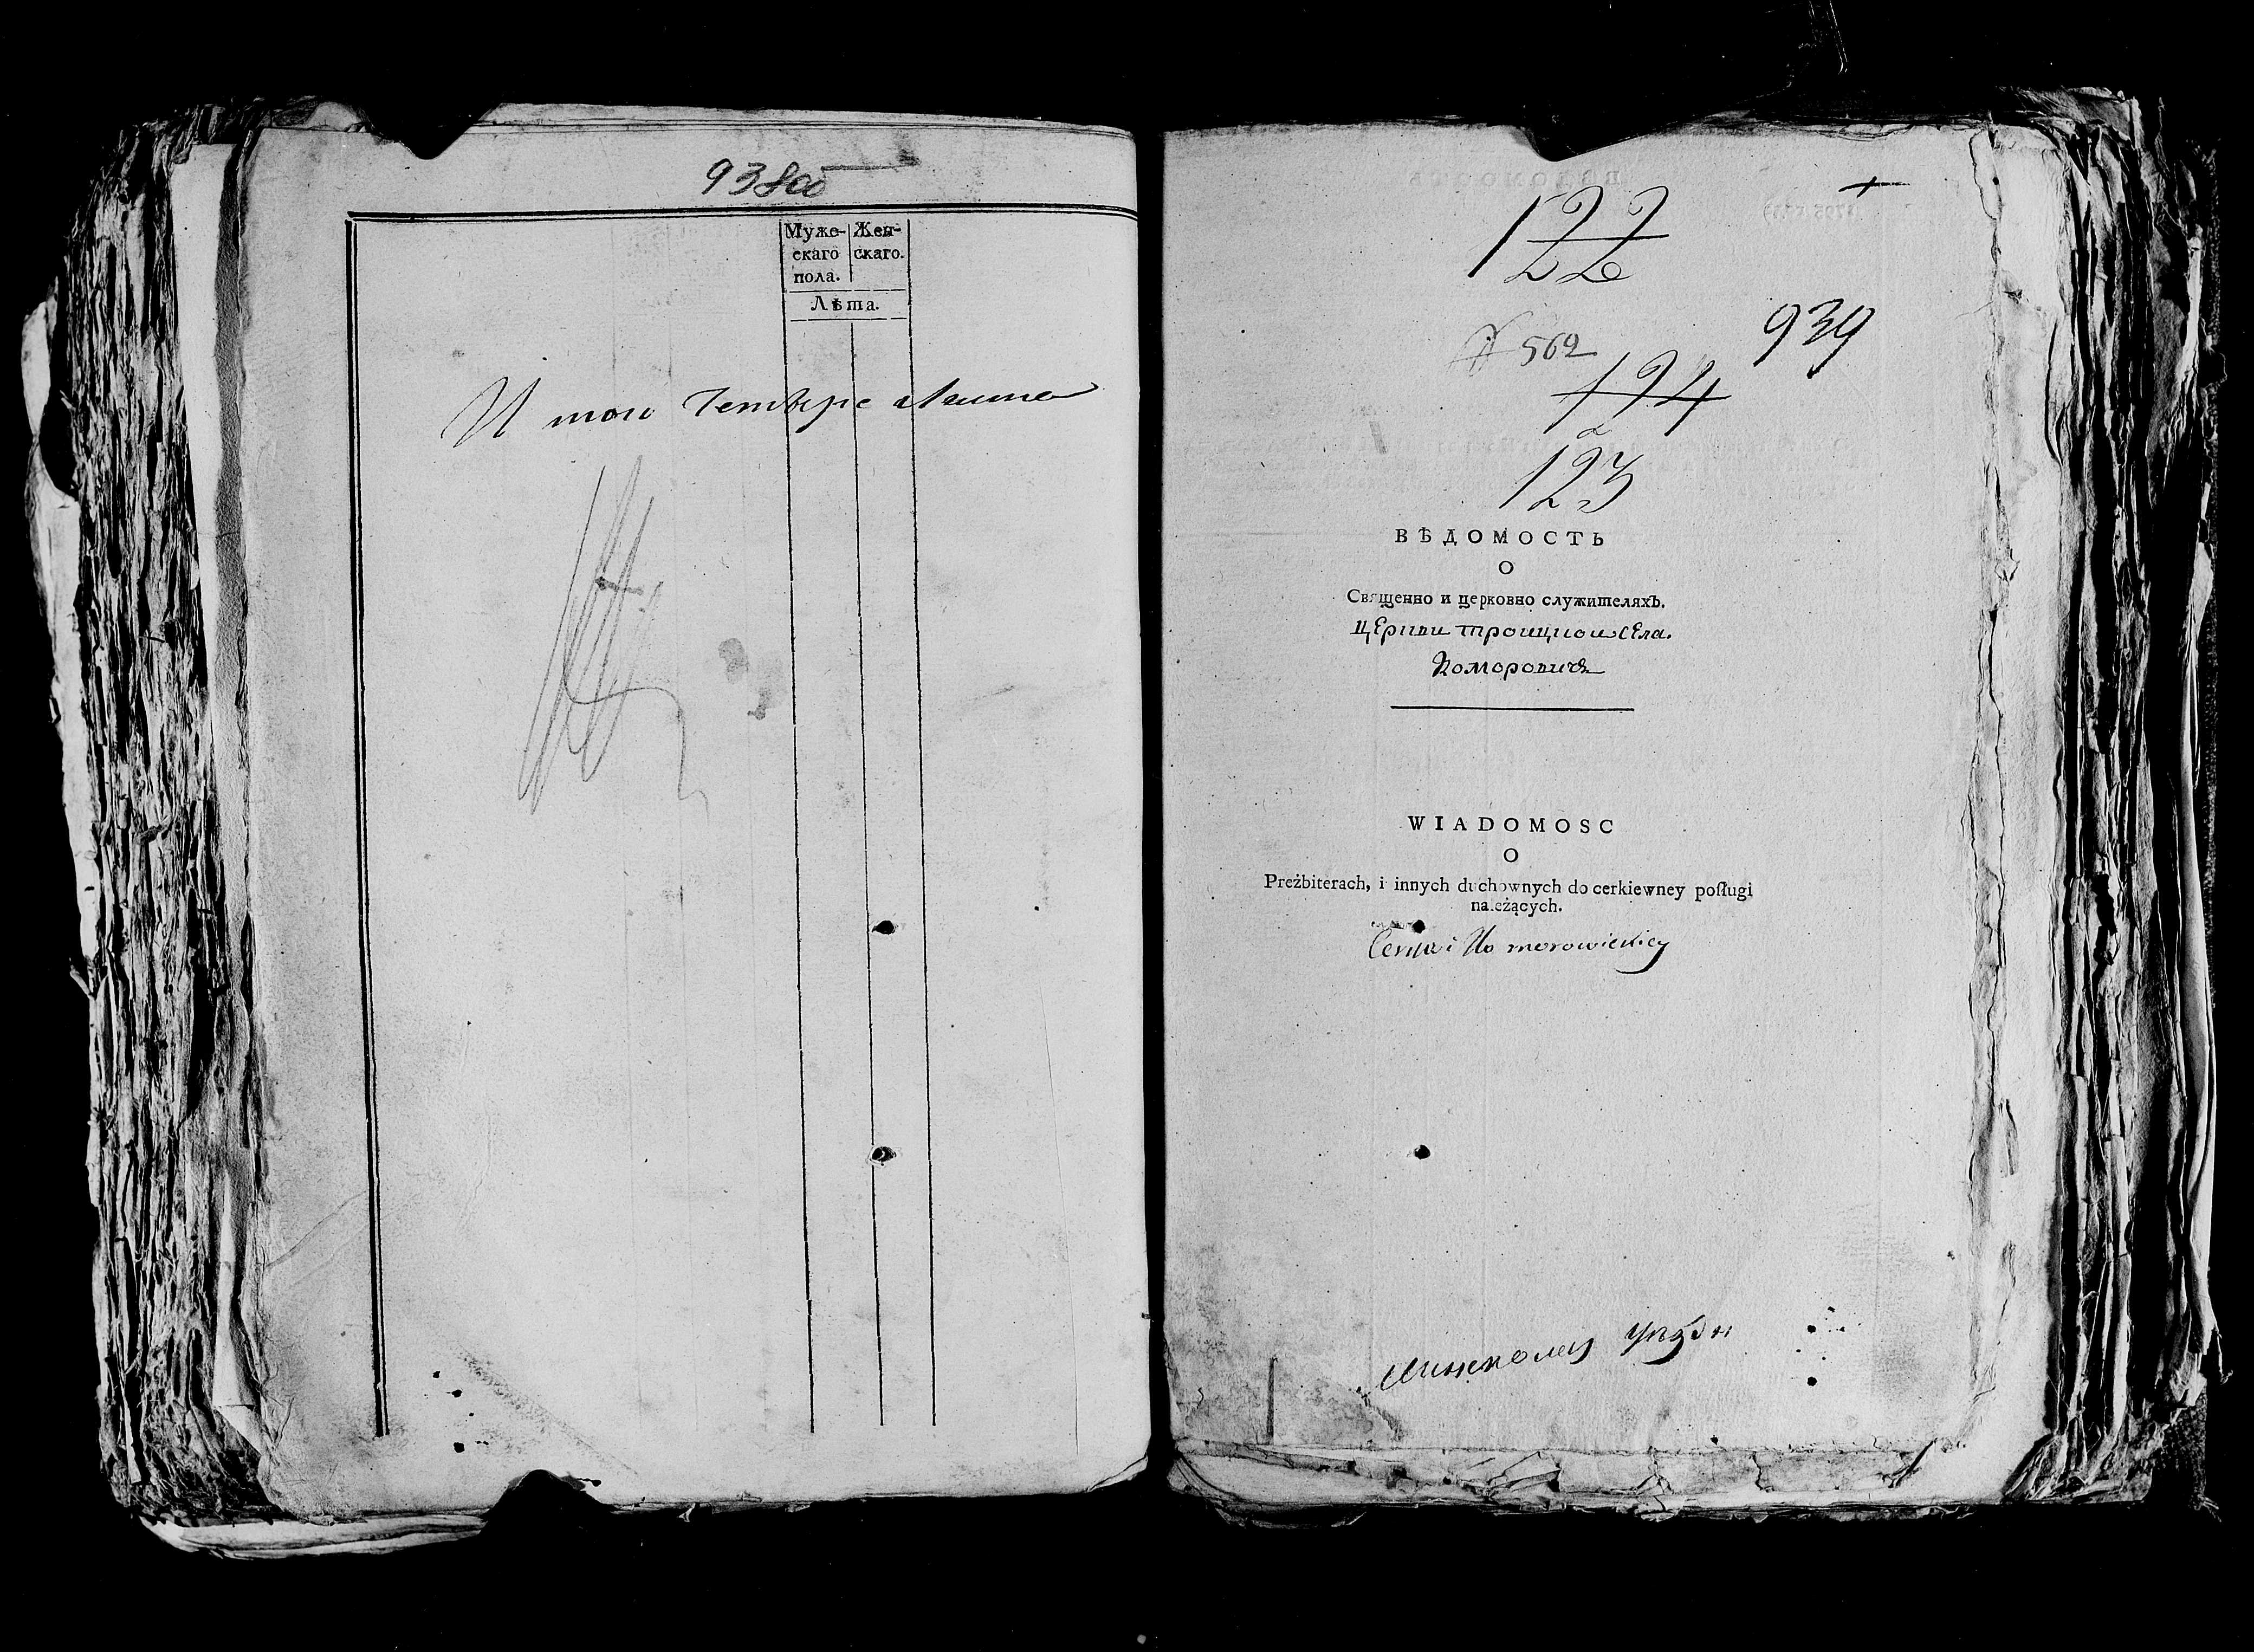 938об
Муже- Жен-
скаго скаго.
пола.
Лѣта.
И того четыре листа
122
939
№ 562
124
123
ВѢДОМОСТЬ
О
Священно и церковно служителяхъ.
церкви троицкои села.
Коморовичъ
WIADOMOSC
O
Preżbiterach, i innych duchownych do cerkiewney poſługi
należących.
Cerkwi Komorowickiey